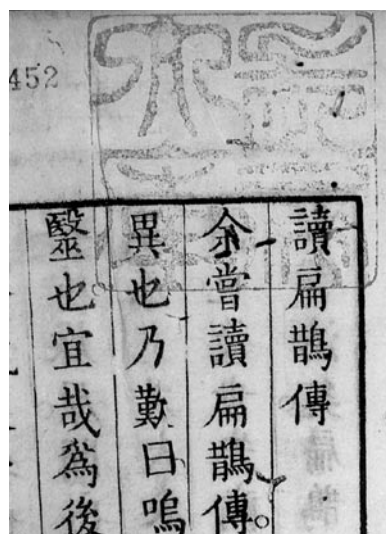 452
讀扁鵲傳
余嘗讀扁鵲傳。
異也乃歎曰嗚
毉也宜哉爲後